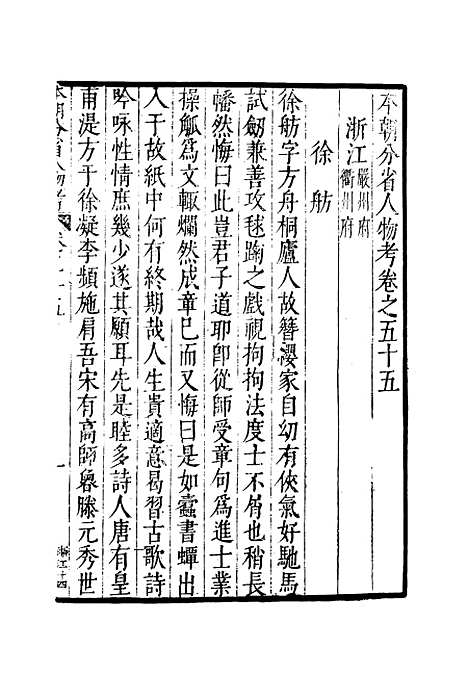 本朝分省人物考卷之五十五
浙江嚴州府
衢州府
徐舫
徐舫字方舟桐廬人故簪瀴家自幼有俠氣好馳馬
試劒兼善攻毬踘之戲視拘拘法度士不屑也稍長
幡然悔曰此豈君子道耶卽從師受章句爲進士業
操觚爲文輙爛然成章巳而又悔曰是如蠧書蟫出
入于故紙中何有終期哉人生貴適意曷習古歌詩
吟咏性情庶幾少遂其願耳先是睦多詩人唐有皇
甫湜方干徐凝李頻施肩吾宋有高師魯滕元秀世
本朝分省人物考
浙江十四